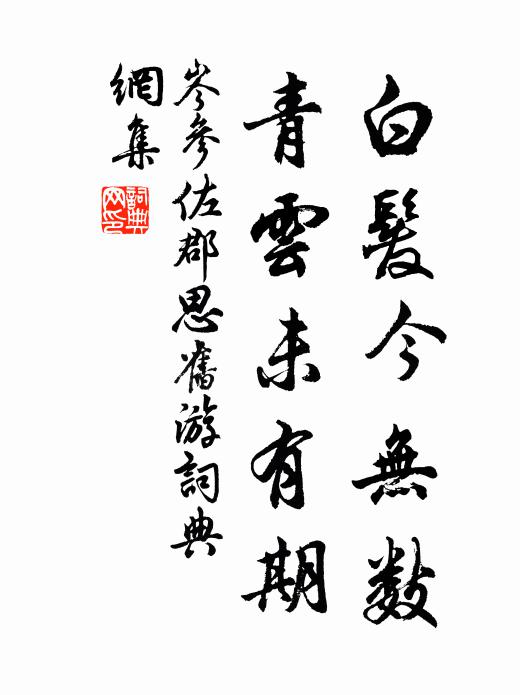 白髮今無數
青雲未有期
岑參佐郡思舊游詞典
網集
詞典
网印